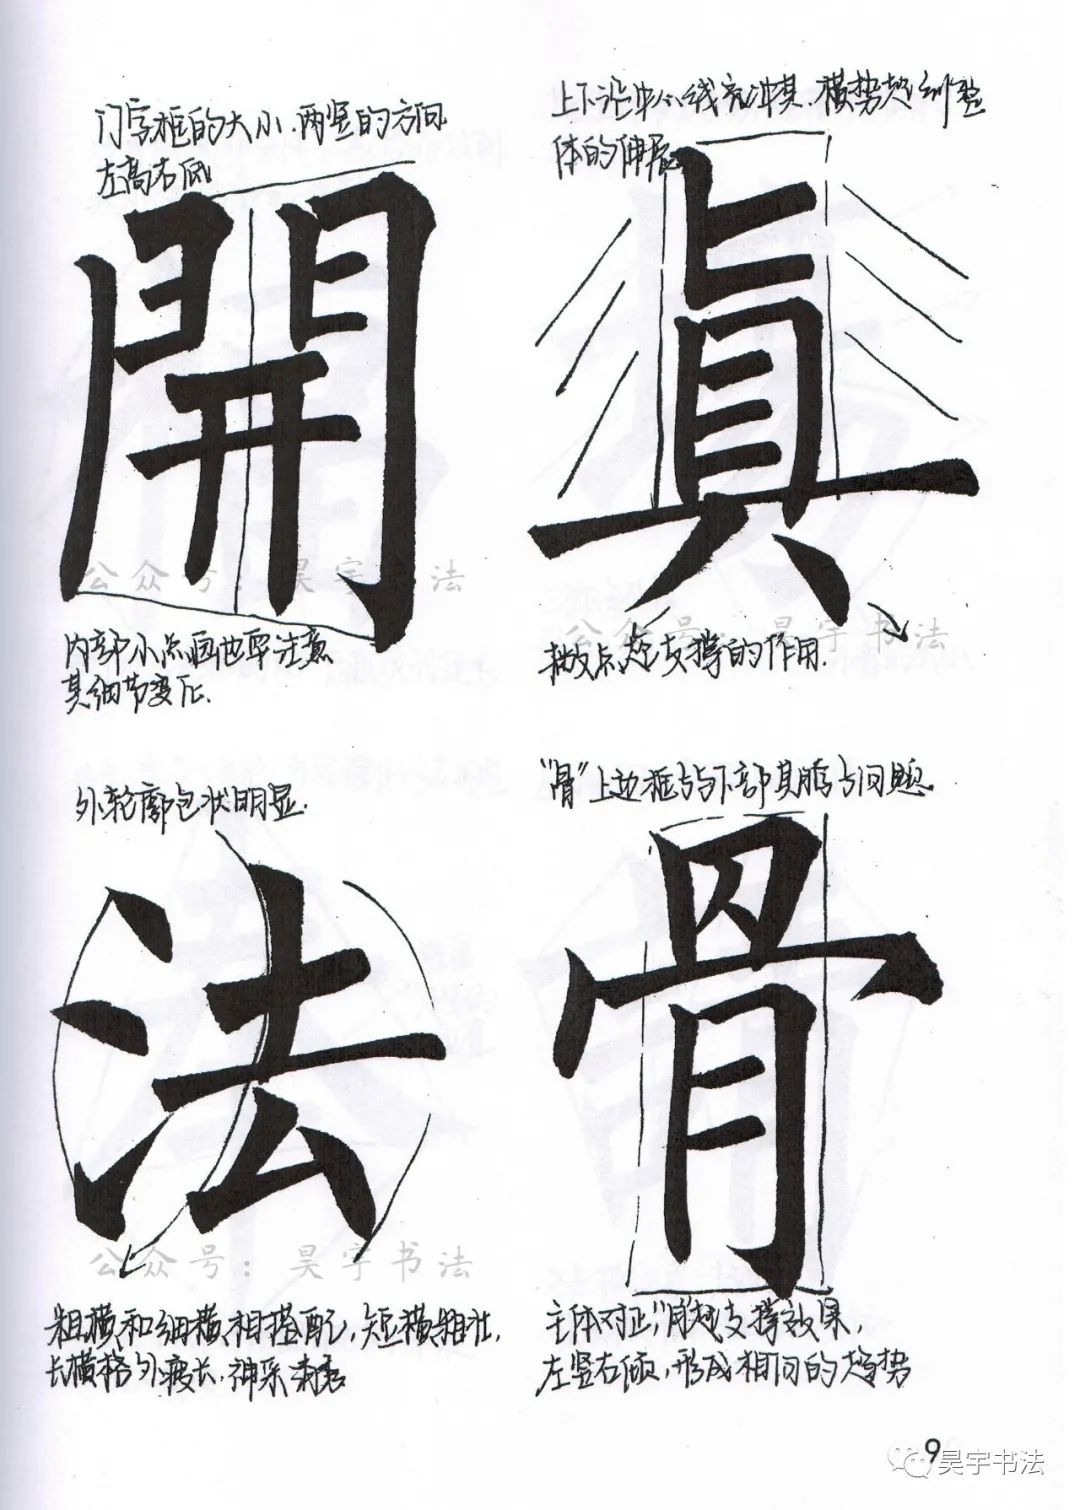 门字框的大小.两竖的方向
左高右低
開
公众号：昊宇书法
内部小点画也要注意
其细节变化.
上下沿中心线完冲其.横势起到整
体的伸展
真
公众号：昊宇书法
撇反点起支撑的作用.
外轮廓包状明显.
法
公众号：昊宇书法
粗横和细横相搭配,短横粗壮,
长横格外瘦长,神采清秀
"骨"上边框与下部其腾与问题.
骨
主体对正,"月"起支撑效果,
左竖右倾,形成相向的趋势
9
昊宇书法